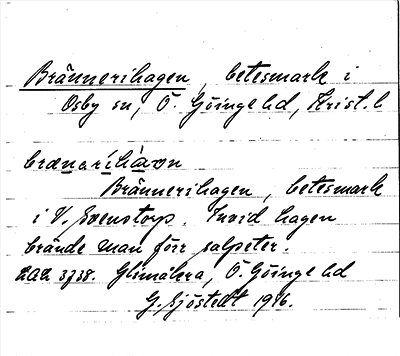 Brännerihagen, betesmark i
Osby sn, Ö. Göinge hd, Krist. l
brænəríhàvn
Brännerihagen, betesmark
i V. Svenstorp. Invid hagen
brände man förr salpeter.
Glimåkra, Ö. Göinge hd
G. Sjöstedt 1916.